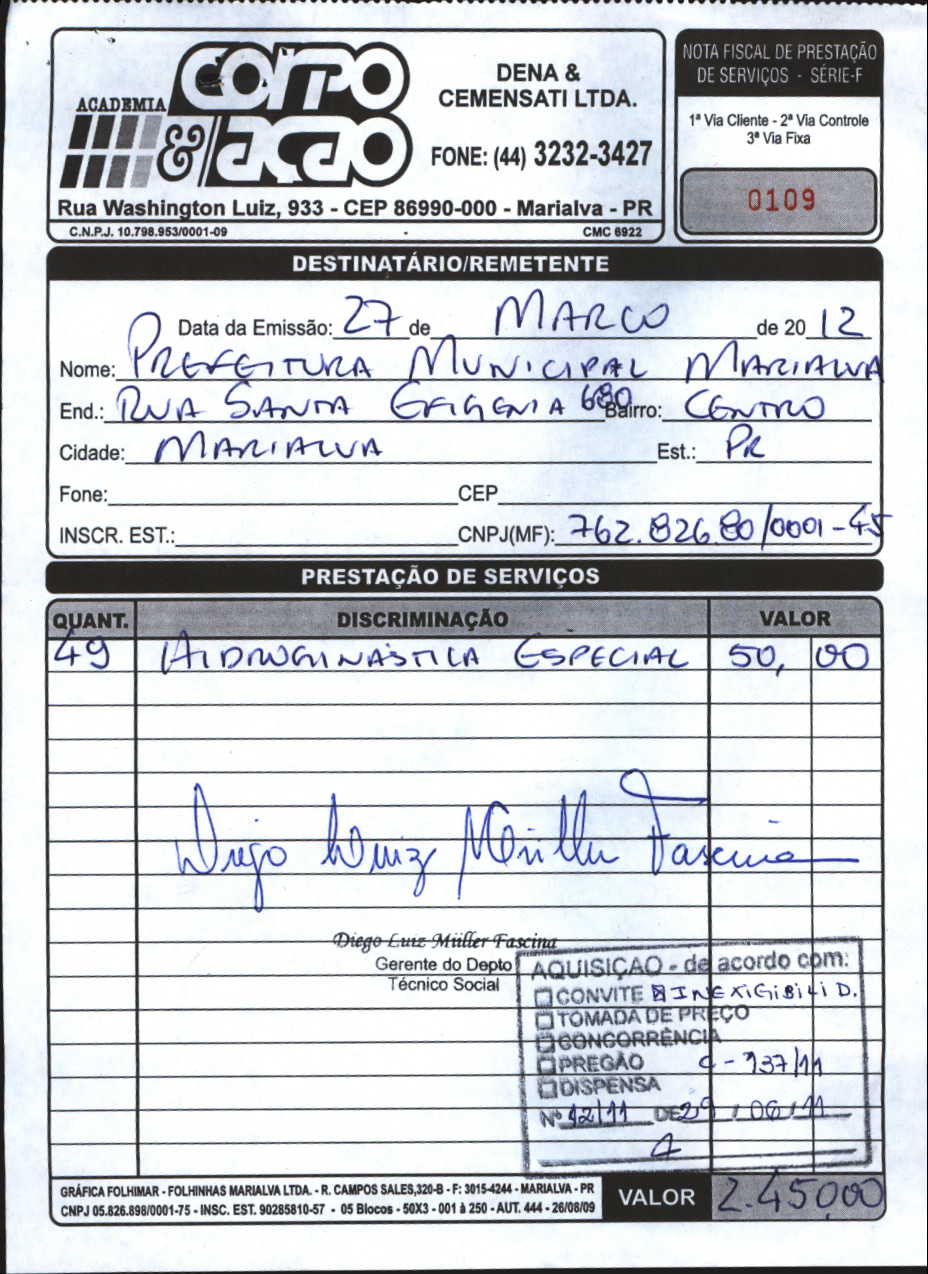 ACADEMIA CORPO & AÇÃO
DENA &
CEMENSATI LTDA.
FONE: (44) 3232-3427
Rua Washington Luiz, 933 - CEP 86990-000 - Marialva - PR
C.N.P.J. 10.798.953/0001-09 CMC 6922
NOTA FISCAL DE PRESTAÇÃO
DE SERVIÇOS - SÉRIE-F
1ª Via Cliente - 2ª Via Controle
3ª Via Fixa
0109
DESTINATÁRIO/REMETENTE
Data da Emissão: 27 de MARCO de 20 12
Nome: PREFEITURA MUNICIPAL MARIALVA
End.: RUA SANTA EFIGENIA 680 Bairro: CENTRO
Cidade: MARIALVA Est.: PR
Fone: CEP
INSCR. EST.: CNPJ(MF): 762.826.80/0001-45
PRESTAÇÃO DE SERVIÇOS
QUANT. DISCRIMINAÇÃO VALOR
49 HIDROGINASTICA ESPECIAL 50,00
Diego Luiz Müller Fascina
Diego Luiz Müller Fascina
Gerente do Depto
Técnico Social
AQUISIÇAO - de acordo com:
CONVITE INEXIGIBILID.
TOMADA DE PREÇO
CONCORRÊNCIA
PREGÃO C-137/11
DISPENSA
Nº 12/11 DE 29/06/11
GRÁFICA FOLHIMAR - FOLHINHAS MARIALVA LTDA. - R. CAMPOS SALES,320-B - F: 3015-4244 - MARIALVA - PR
CNPJ 05.826.898/0001-75 - INSC. EST. 90285810-57 - 05 Blocos - 50X3 - 001 à 250 - AUT. 444 - 26/08/09
VALOR 2.450,00